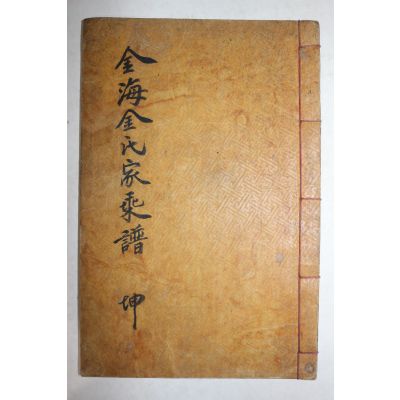 金海金氏家乘譜 坤